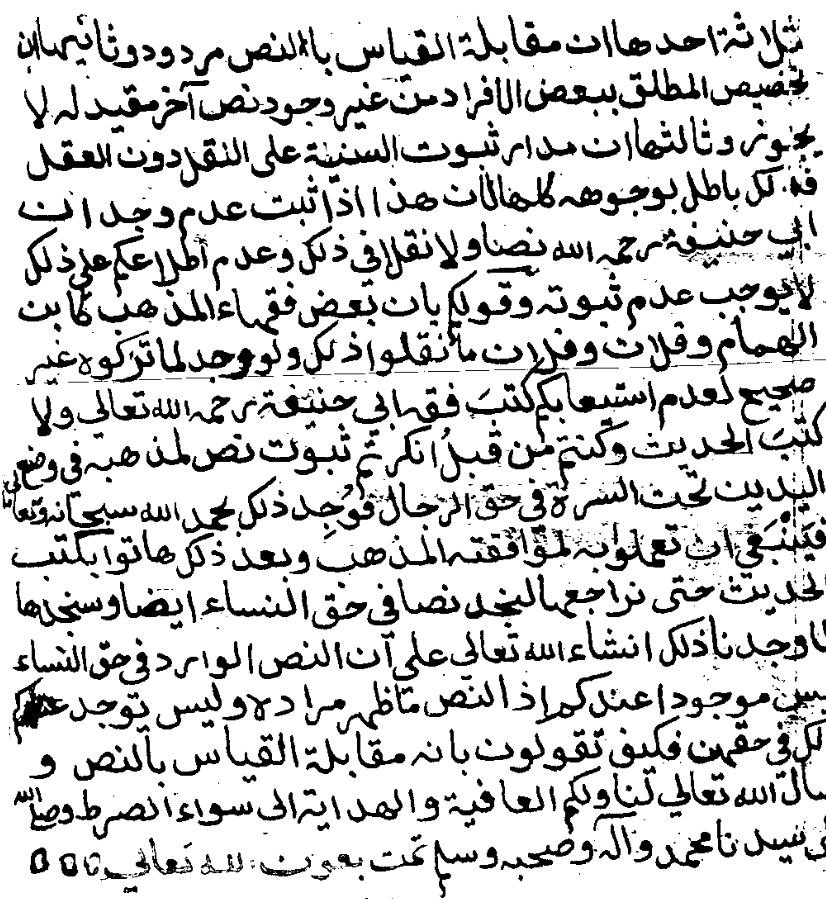 ثلاثة احدها ان مقابلة القياس بالنص مردود وثانيها ان
تخصيص المطلق ببعض الافراد من غير وجود نص آخر مقيد له لا
يجوز وثالثها ان مدار ثبوت السنية على النقل دون العقل
فذلك باطل بوجوهه كلها لان هذا اذا ثبت عدم وجدان
ابي حنيفة رحمه الله نصا ولا نقلا في ذلك وعدم اطلاعكم على ذلك
لا يوجب عدم ثبوته وقولكم بان بعض فقهاء المذهب كابن
الهمام وفلان وفلان ما نقلوا ذلك ولو وجد لما تركوه غير
صحيح لعدم استيعابكم كتب فقه ابي حنيفة رحمه الله تعالى ولا
كتب الحديث وكنتم من قبل انكرتم ثبوت نص لمذهبه في وضع
اليدين تحت السرة في حق الرجال فوجد ذلك بحمد الله سبحانه وتعالى
فينبغي ان تعملوا به لموافقته المذهب وبعد ذلك هاتوا بكتب
الحديث حتى نراجعها لنجد نصا في حق النساء ايضا وسنجدها
كما وجدنا ذلك انشاء الله تعالى على ان النص الوارد في حق النساء
ليس موجودا عندكم اذ النص ما ظهر مراده وليس توجد عندكم
ذلك في حقهن فكيف تقولون بانه مقابلة القياس بالنص و
نسأل الله تعالى لنا ولكم العافية والهداية الى سواء الصرط وصلى الله
على سيدنا محمد وآله وصحبه وسلم تمت بعون الله تعالى